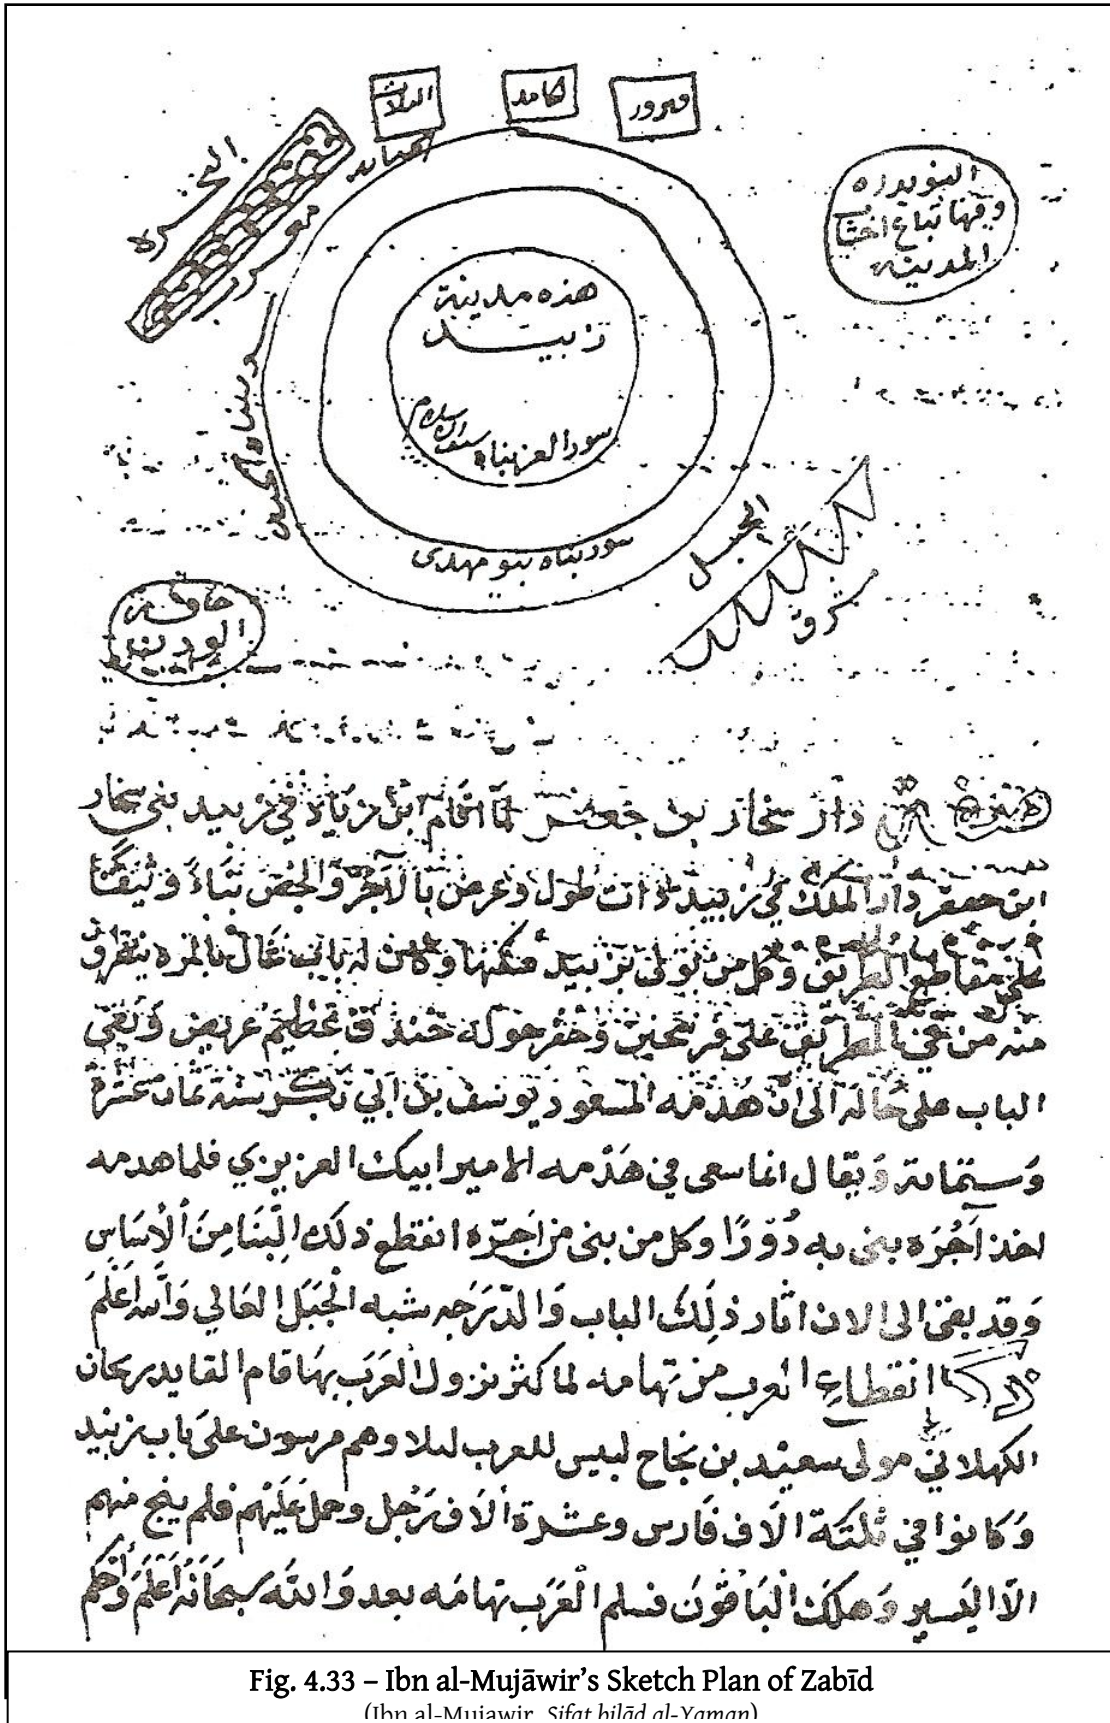 فىرور
كامد
البحر
هذه مدينة
زبيد
المدينه
سور بناه بنو مهدى
الجبل
شرق
حافه
دار شحار بن جعفر لمّا اقام ابن زياد في زبيد بنى شحار
ابن جعفر دار الملك في زبيد ذات طول وعرض بالآجر والجص بناءً وثيقًا
على مقاطع الطريق وكل من تولى بزبيد سكنها وكان له باب عال بالمره ينفرق
منه من في الطريق على فرسخين وحفر حوله خندق عظيم عريض وبقي
الباب على حاله الى ان هدمه المسعود يوسف بن ابي بكر سنة ثمان عشرة
وستماية ويقال انما سعى في هدمه الامير ايبك العزيزي فلما هدمه
اخذ آجُرَه بنى به دُورًا وكل من بنى من آجره انقطع ذلك البنا من الأساس
وقد بقى الى الان اثار ذلك الباب والدرجه شبه الجبل العالي والله اعلم
انقطاع العرب من تهامه لما كثر نزول العرب بها قام القايد ريحان
الكهلاني مولى سعيد بن نجاح لبيس للعرب ليلا وهم مرسون على باب زبيد
وكانوا في ثلثة الاف فارس وعشرة الاف رجل وحمل عليهم فلم ينج منهم
الا اليسير وهلك الباقون فسلم العرب تهامه بعد والله سبحانه اعلم واحكم
Fig. 4.33 – Ibn al-Mujāwir’s Sketch Plan of Zabīd
(Ibn al-Mujawir, Sifat bilād al-Yaman)